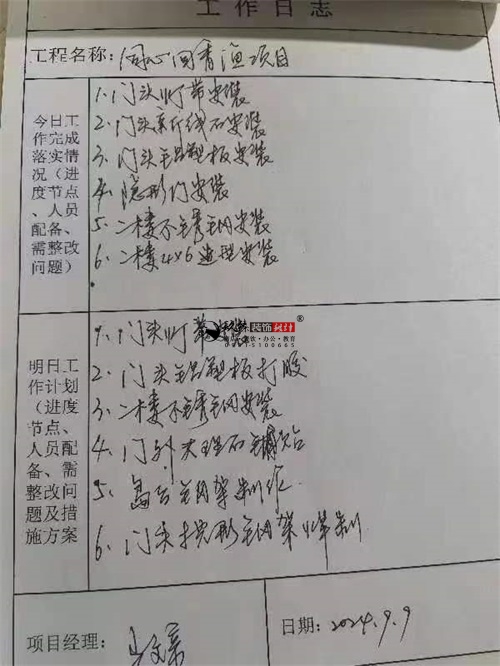 工作日志
工程名称：同心回香渔项目
今日工作完成落实情况（进度节点、人员配备、需整改问题）
1. 门头灯带安装
2. 门头亲行线石安装
3. 门头铝塑板安装
4. 隐形门安装
5. 二楼不锈钢安装
6. 二楼4×6造型安装
明日工作计划（进度节点、人员配备、需整改问题及措施方案
1. 门头灯带安装
装饰设计®
餐饮·办公·教育
2. 门头铝塑板打胶
3. 二楼不锈钢安装
4. 门外大理石铺贴
5. 高台钢架制作
6. 门头拱形钢架焊制
项目经理：
日期：2024.9.9